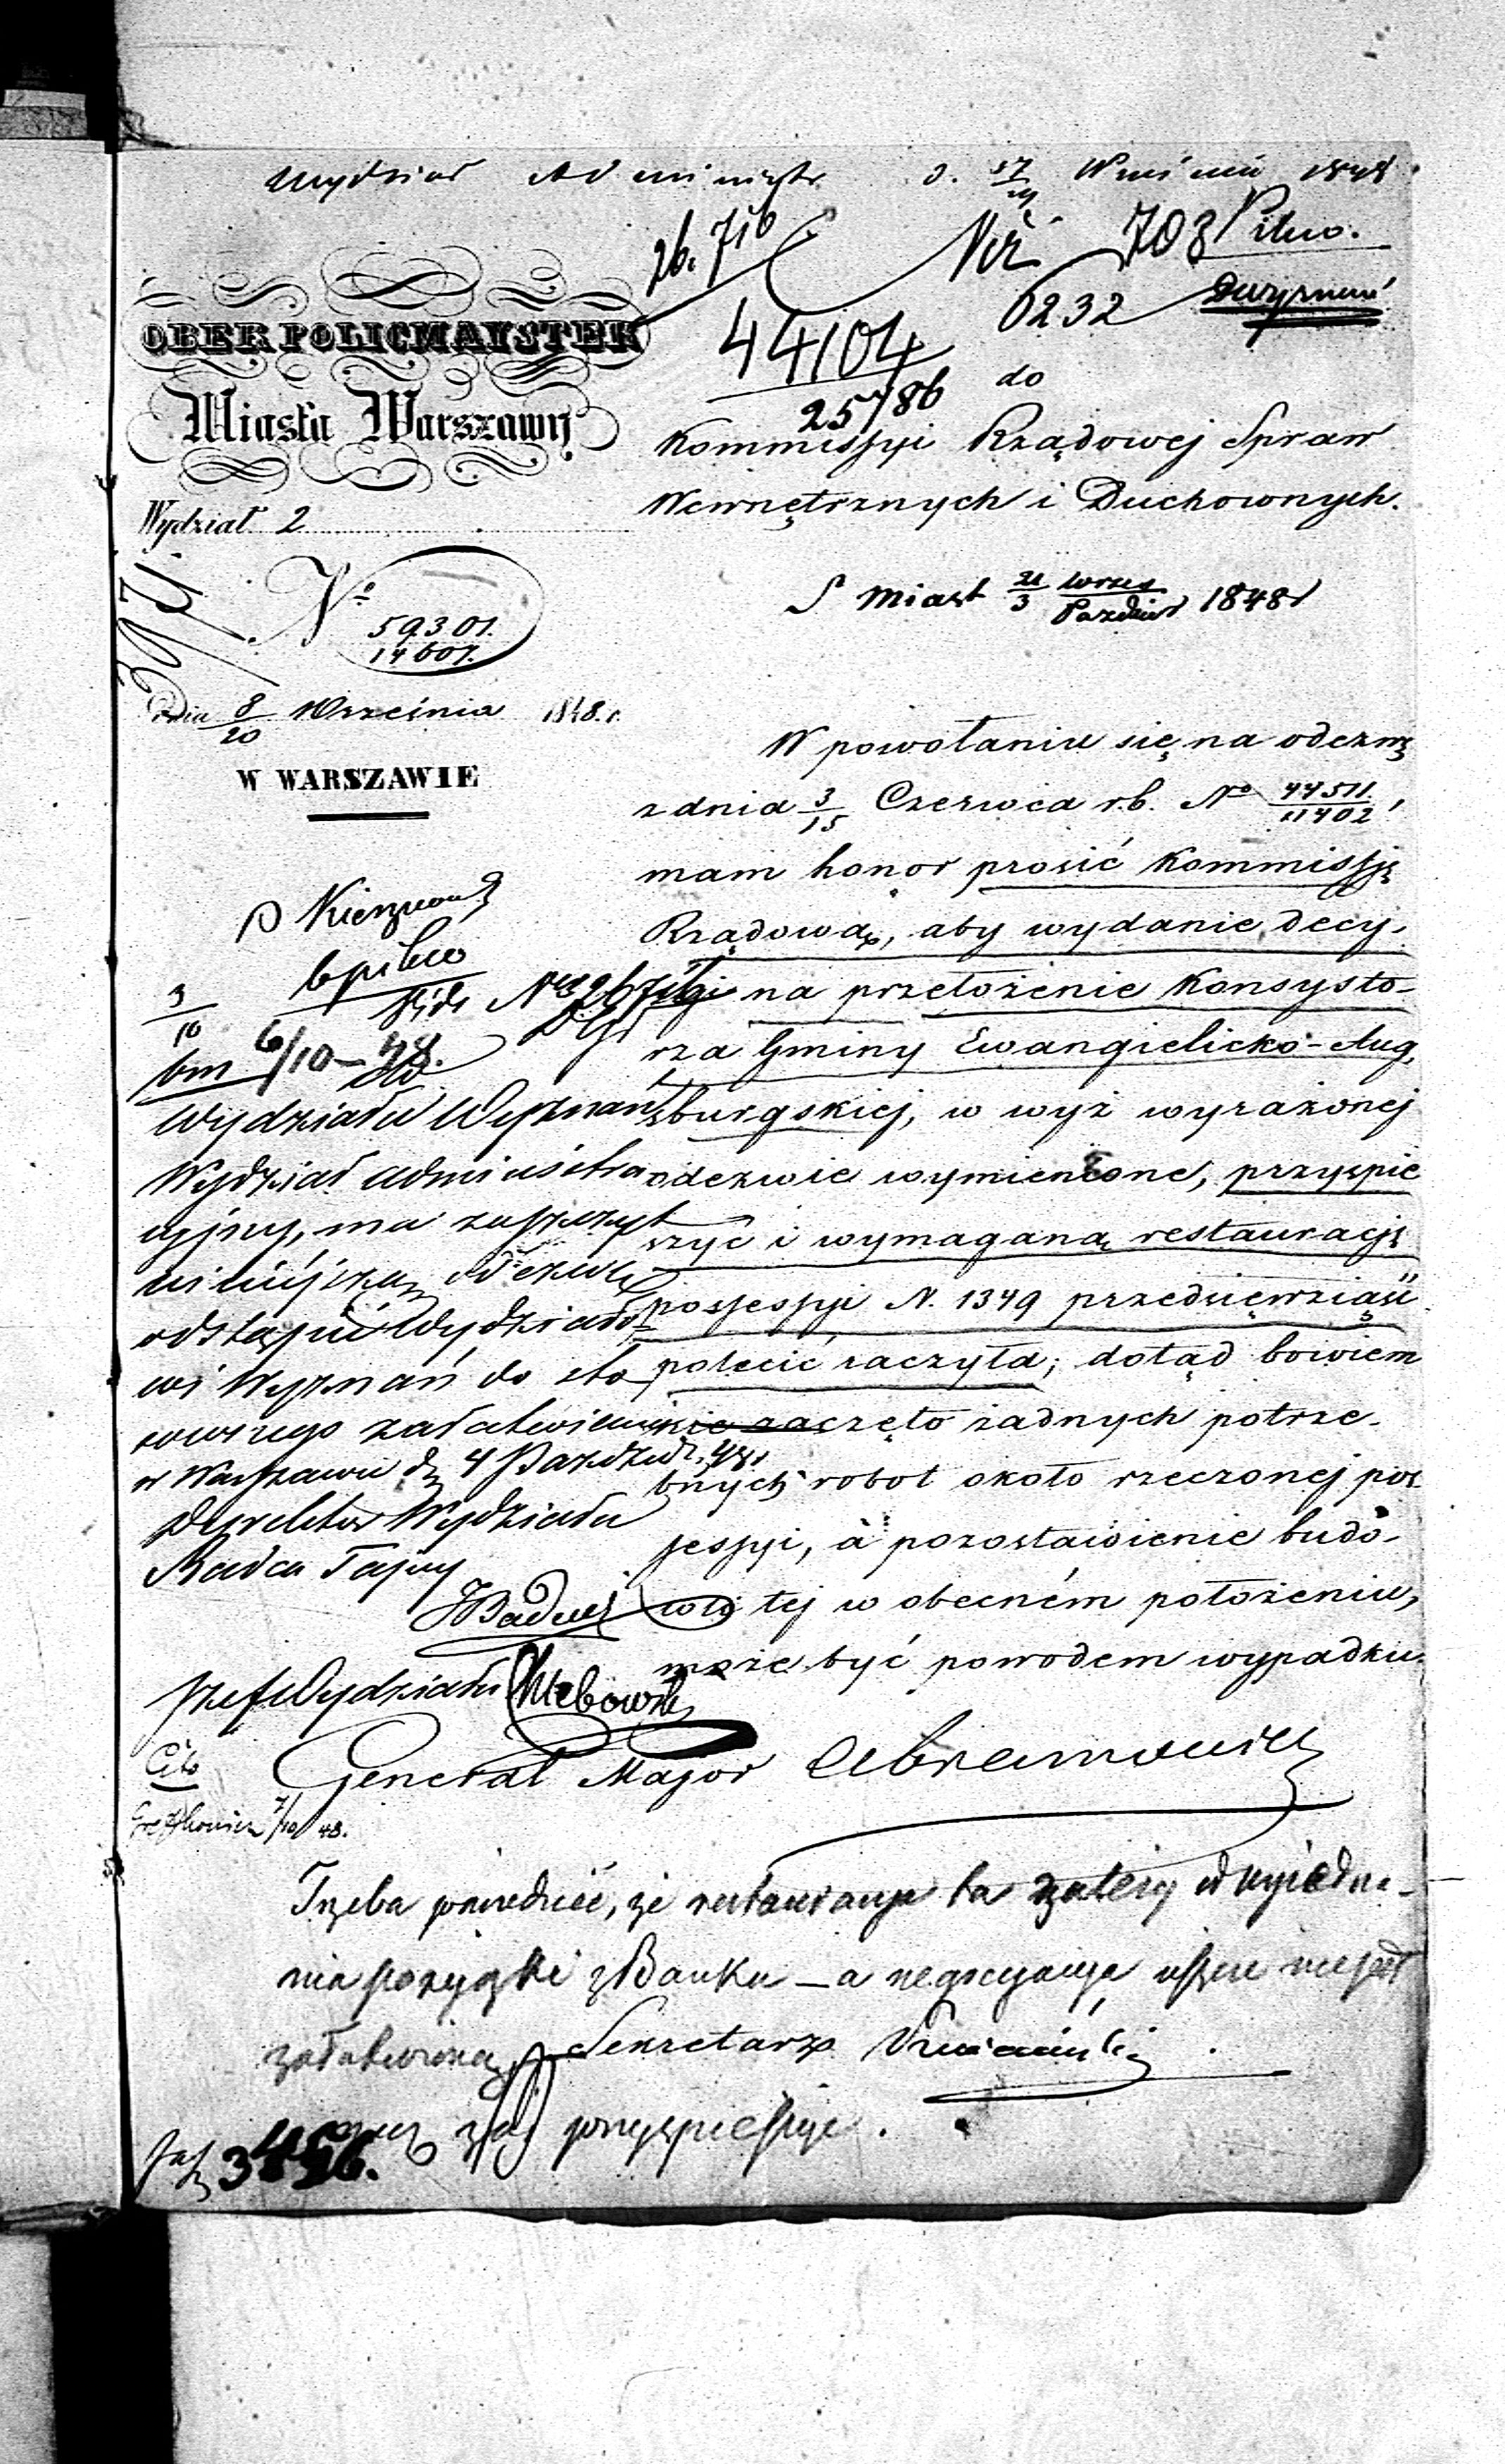 Wydział Administr. d. 17/29 Wrześniu 1848
26.716
Nr 703 Pilno.
6232
44104
25786
OBER POLICMAYSTER
Miasta Warszawy
do
Kommissyi Rządowej Spraw
Wewnętrznych i Duchownych.
Wydział 2
S Miast 21/3 Wrześ/Paździer 1848 r
No 59301.
14607.
Dnia 8/20 Września 1848. r.
W WARSZAWIE
W powołaniu się na odezwę
z dnia 3/15 Czerwca r.b. No 44511./11402,
mam honor prosić Kommissję
Rządową, aby wydanie decy-
zji na przełożenie Konsysto-
rza Gminy Ewangielicko-Aug,
sburgskiej, w wyż wyrażonej
odezwie wymienione, przyspie
szyć i wymaganą restaurację
possessyi N. 1349 przedsięwziąść
polecić raczyła; dotąd bowiem
nie zaczęto żadnych potrze-
bnych robot około rzeczonej pos
sessyi, a pozostawienie budo-
wli tej w obecném położeniu,
może być powodem wypadku.
Generał Major Abramowicz
Sekretarz
pilno
3/10
6/10 – 48.
Wydziału Wyznań
Wydział administra
cyjny, ma zaszczyt
niniejszą odezwę
odstąpić Wydziało
wi Wyznań do sto
sownego załatwienia
w Warszawie d. 4 Paździer. 48 r
Dyrektor Wydziału
Radca Tajny
Szef Wydziału
Cito
7/10 48.
Trzeba powiedzieć, że restauracya ta zależy od wyjedna-
nia pożyczki z Banku – a negocyacya jeszcze nie jest
załatwioną
przyspieszyć.
3456.